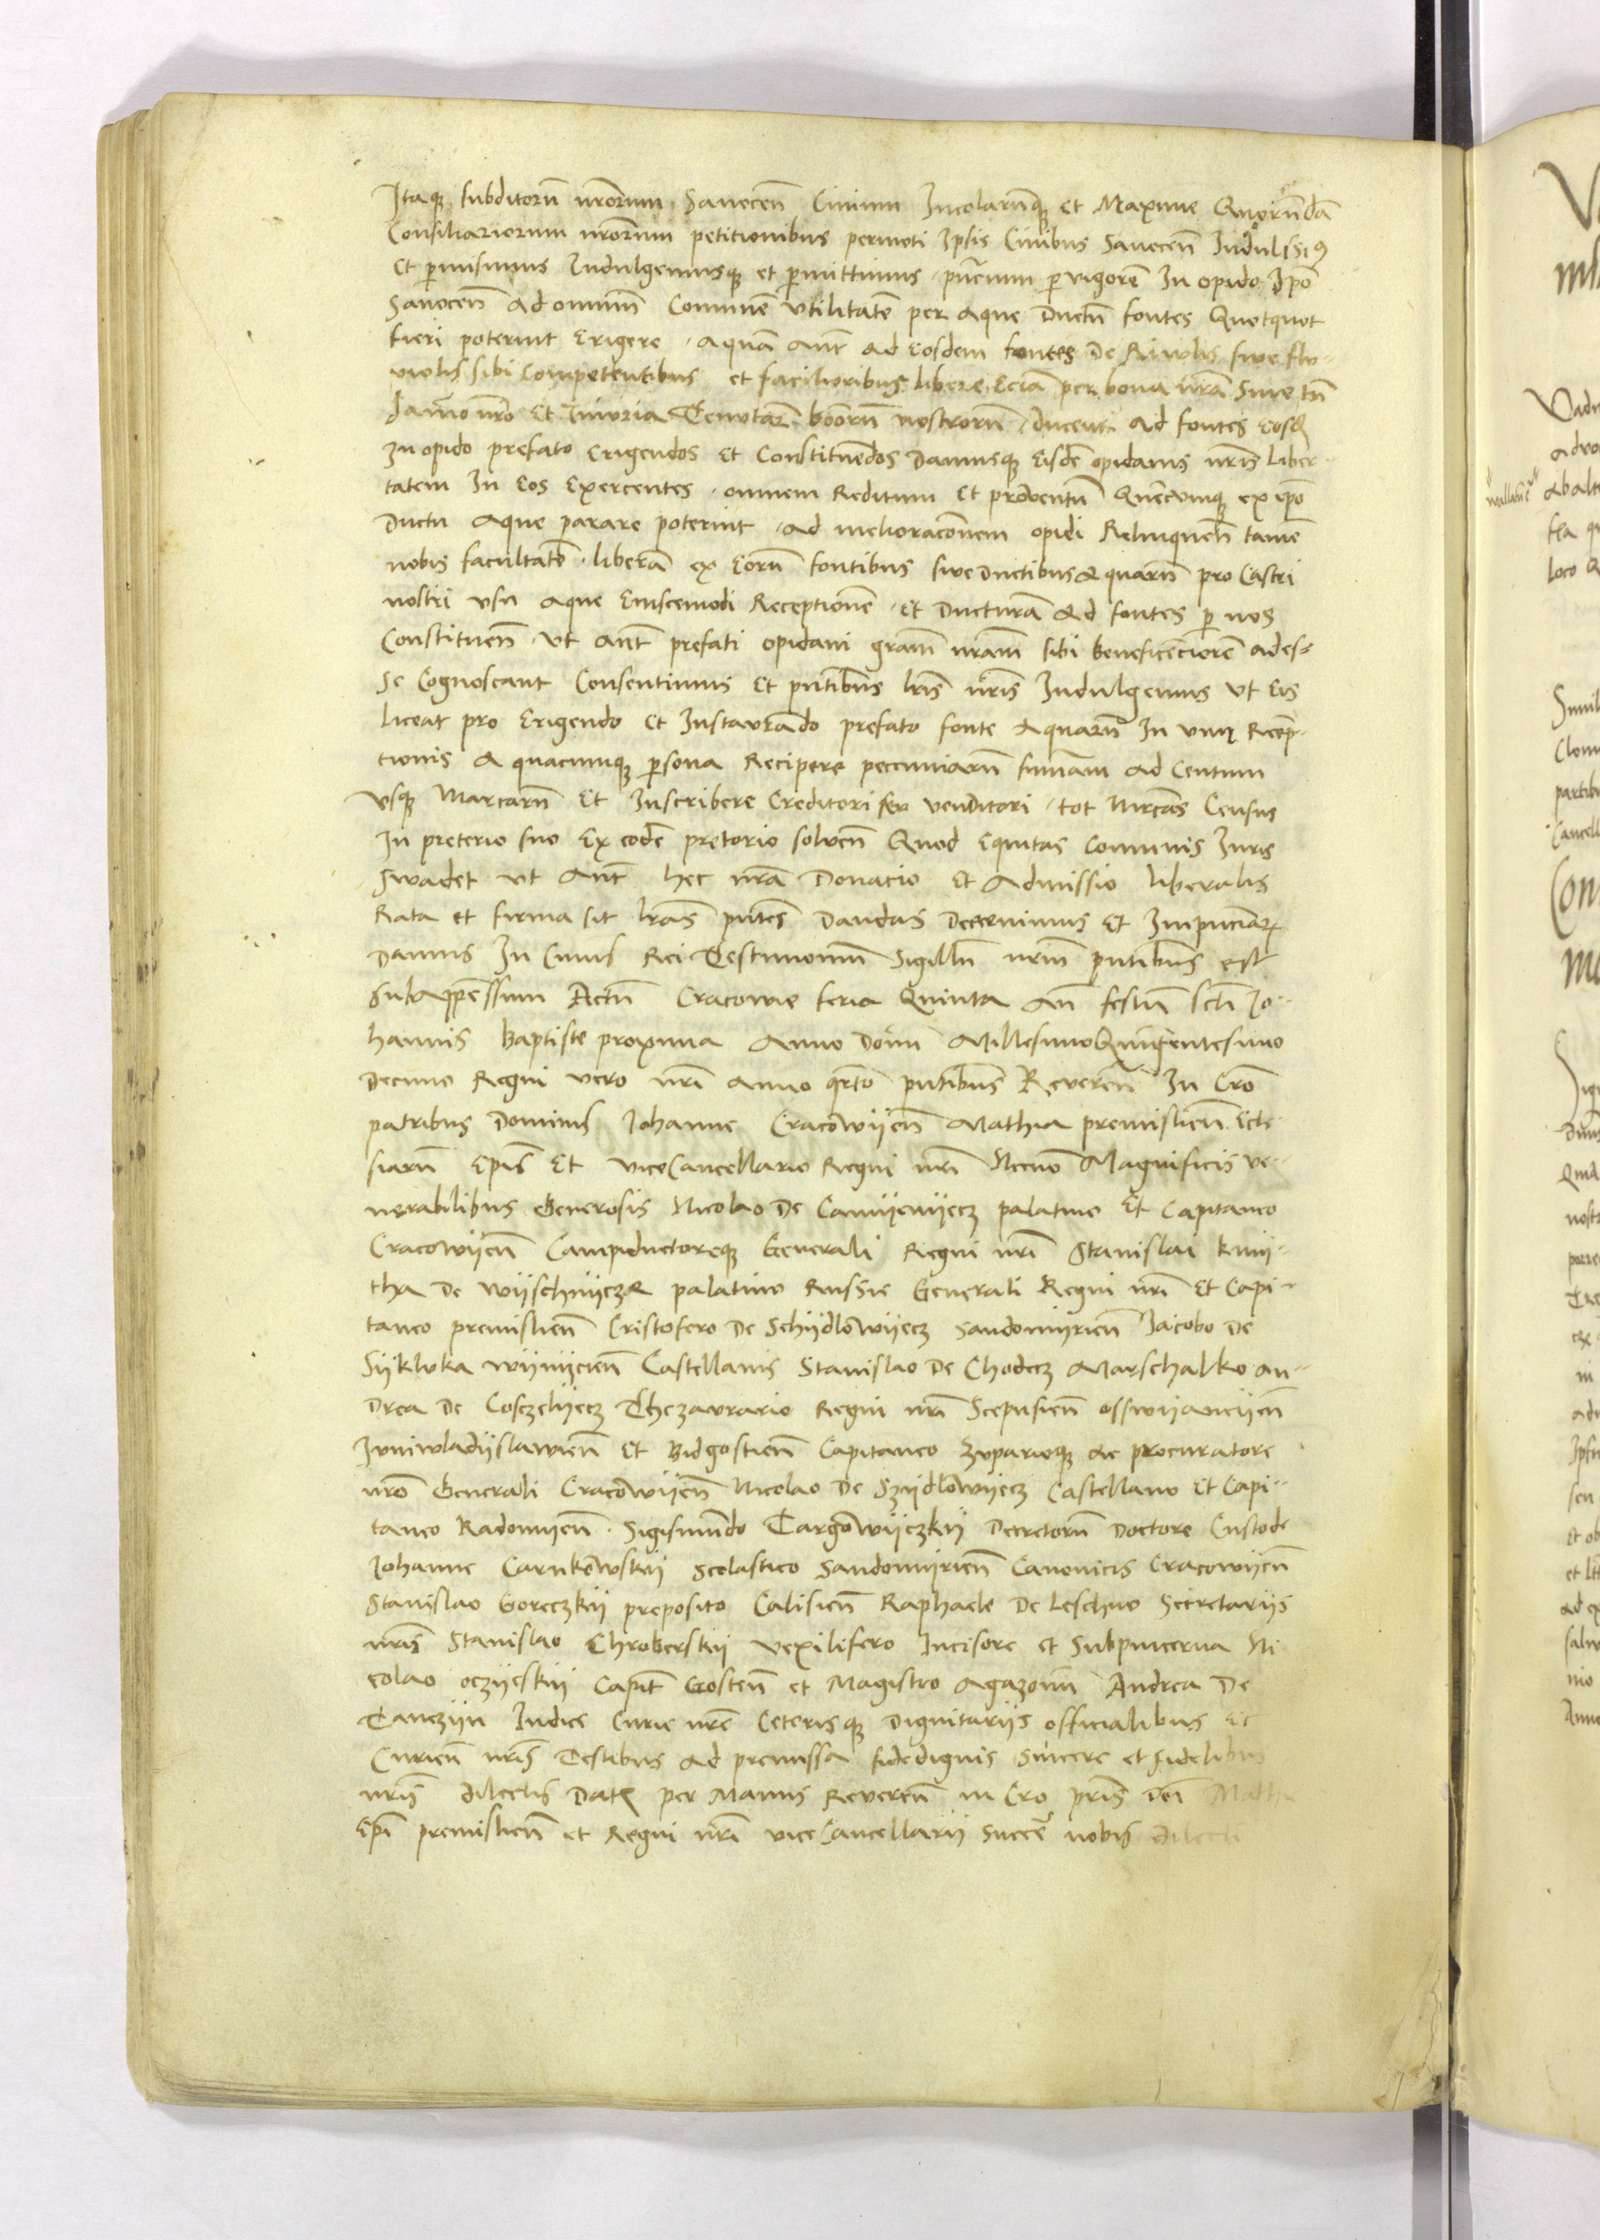 Itaq3 subditorū nr̄orum Sanocen̄ Ciuium Incolarumq3 et Maxime Quorūdā
Consiliariorum nr̄orum petitionibus permoti Ipsis Ciuibus Sanocen̄ Indulsimꝰ
Et ꝑmisimus Indulgemusq3 et ꝑmittimus pn̄cium ꝑ vigorē In opido Ip̄o
Sanocen̄ Ad omnium Comunē vtilitatē per Aque Ductū fontes Quotquot
fieri poterint Erigere Aquā Aut̄ Ad Eosdem fontes De Riuolis siue flu-
violis sibi Competentibus et facilioribus libere Eciā per bona nr̄a Sine tn̄
dāmo nr̄o Et Iniuria Tenutar̄ bōorū nostrorū ducent Ad fontes Eosd̄
In opido prefato Erigendos Et Constituēdos Damusq3 Eisdē opidanis nr̄is Liber
tatem In Eos Exercentes omnem Reditum Et proventū Quēcumq3 ex ip̄o
Ductu Aque parare poterint Ad melioracōnem opidi Relinquen̄ tamē
nobis facultatē liberā ex Eorū fontibus siue Ductibus Aquarū pro Castri
nostri vsu Aque Eiuscemodi Receptionē Et Ducturā Ad fontes ꝑ nos
Constituen̄ Vt Aut̄ prefati opidani grām nr̄am sibi beneficēciorē ades-
se Cognoscant Consentimus Et pn̄tibus lr̄is nr̄is Indulgemus Vt Eis
liceat pro Erigendo Et Instavrādo prefato fonte Aquarū In vim Recep-
tionis A quacumq3 ꝑsona Recipere peccuniarū sum̄am Ad Centum
Vsq3 Marcarū Et Inscribere Creditori seu venditori tot Mrcās Census
In pretorio suo Ex eodē pretorio solven̄ Quod Equitas Comunis Iuris
Swadet Vt Aut̄ hec nr̄a Donacio Et Admissio liberalis
Rata et firma sit lr̄as pn̄tes Dandas Decrevimus Et
Damus In Cuius Rei Testimonium Sigillū nr̄m pn̄tibus est
Subappressum Actū Cracowie feria Quinta An̄ festū scti Io-
hannis Baptiste proxima Anno Dom̄ Millesimo Quingentesimo
Decimo Regni vero nr̄i Anno qrto pn̄tibus Reveren̄ In Cro
patribus Dominis Iohanne Cracowijen̄ Mathia premislien̄ Ecle
siarū Ep̄is Et viceCancellario Regni nr̄i Necnō Magnificis ve-
nerabilibus Generosis Nicolao De Camijenijecz palatino Et Capitaneo
Cracowijen̄ Campiductoreq3 Generali Regni nr̄i Stanislai kmij-
tha De wijschnijcze palatino Russie Generali Regni nr̄i Et Capi-
taneo premislien̄ Cristofero De Schijdlowijecz Sandomijrien̄ Iacobo De
Sijkluka wijnijcien̄ Castellanis Stanislao De Chodecz Marschalko An-
Drea De Cosczelijecz Thezavrario Regni nr̄i Scepusien̄ osswijancijen̄
Ivniwladijslawien̄ Et Bidgostien̄ Capitaneo Zuparioq3 Ac procuratore
nr̄o Generali Cracowijen̄ Nicolao De Szijdlowijecz Castellano Et Capi-
taneo Radomijen̄ Sigismundo Targowijczkij Decretorū Doctore Custode
Iohanne Carnkowskij Scolastico Sandomijrien̄ Canonicis Cracowijen̄
Stanislao Goreczkij preposito Calisien̄ Raphaele De Leschno Secretariis
nr̄is Stanislao Chroberskij vexilifero Incisore et Subpincerna Ni
colao oczijeskij Capit̄ Gosten̄ et Magistro Agazonū Andrea De
Tanczijn Iudice Curie nr̄e Ceterisq3 Dignitariis officialibus Et
Curien̄ nr̄is Testibus Ad premissa fidedignis sincere et fidelibus
nr̄is dilectis Dat̄ per Manus Reveren̄ in Cro pr̄is Dn̄i Mathi
Ep̄i premislien̄ et Regni nr̄i viceCancellarij Sincē nobis Dilecti